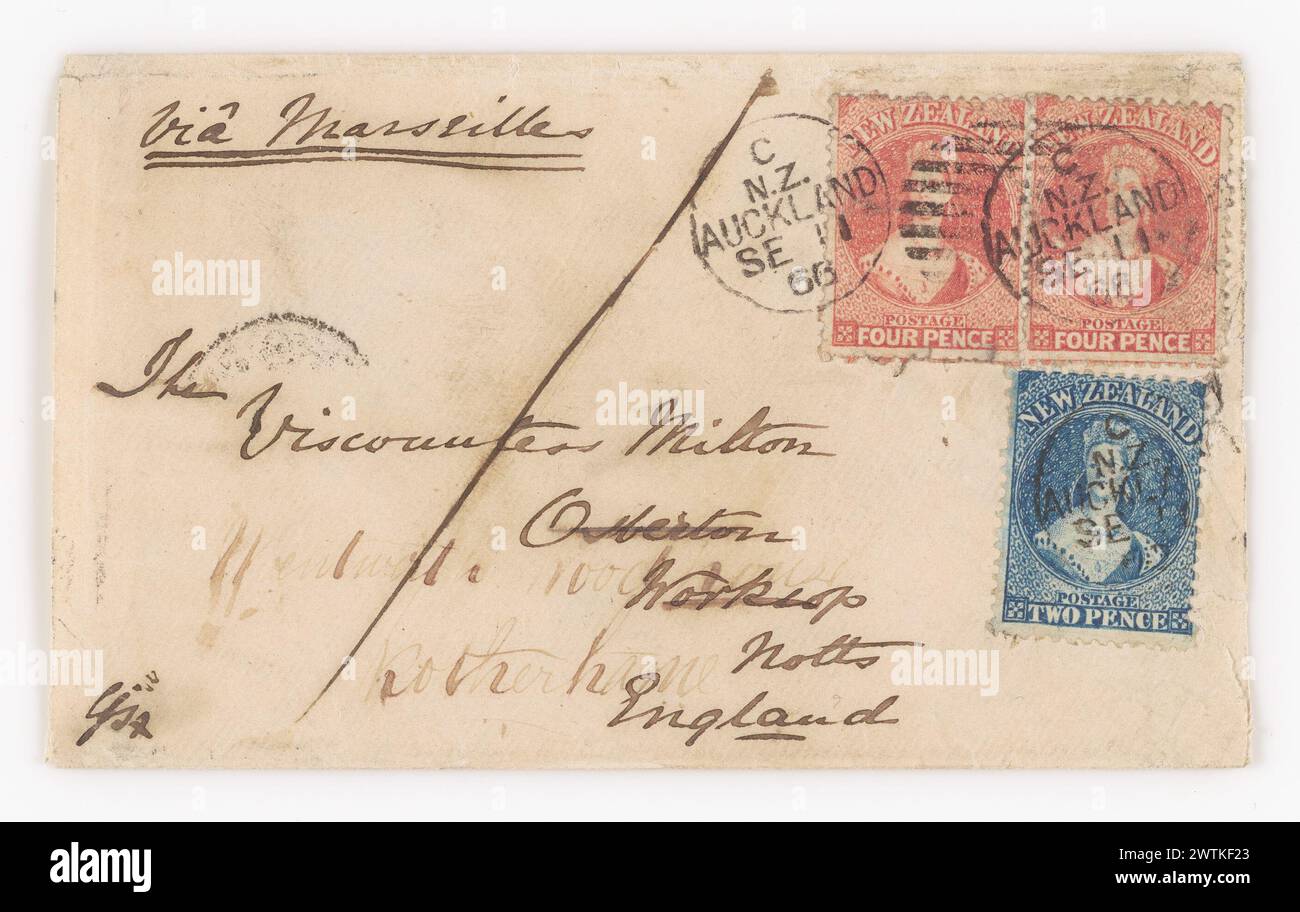 Viâ Marseilles
NEW ZEALAND
POSTAGE
FOUR PENCE
NEW ZEALAND
POSTAGE
FOUR PENCE
C
N.Z.
AUCKLAND
SE 11
66
C
N.Z.
AUCKLAND
SE 11
66
The
Viscountess Milton
Osberton
Worksop
Notts
England
Wentworth Woodhouse
Rotherham
NEW ZEALAND
POSTAGE
TWO PENCE
C
N.Z.
AUCKL
SE
alamy
Image ID: 2WTKF23
www.alamy.com